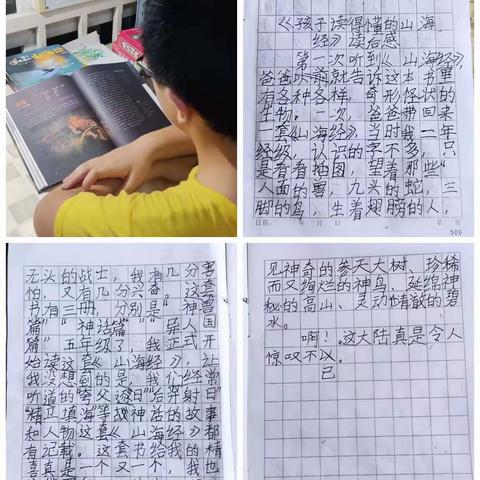 《孩子读得懂的山海
经》读后感
第一次听到《山海经》,
爸爸以前就告诉这本书里
有各种各样,奇形怪状的
生物。一次,爸爸带回来
一套《山海经》,当时我一年
级,认识的字不多,只
是看看插图,望着那些“
人面的兽,九头的蛇,三
脚的鸟,生着翅膀的人,
509
无头的战士,我有几分害
怕,又有几分兴奋。这套
书有三册,分别是“神兽
篇”“神话篇”“异人国
篇”五年级了,我正式开
始读这套《山海经》,让
我没想到的是,我们经常
听道的“夸父逐日”“后羿射日”
“精卫填海”等战神话的故事
和人物这套《山海经》都
有记载。这套书给我的精
喜真是一个又一个,我也
见神奇的参天大树、珍稀
而又绚烂的神鸟、延绵神
秘的高山、灵动清澈的碧
水。
啊!这大陆真是令人
惊叹不以。
已